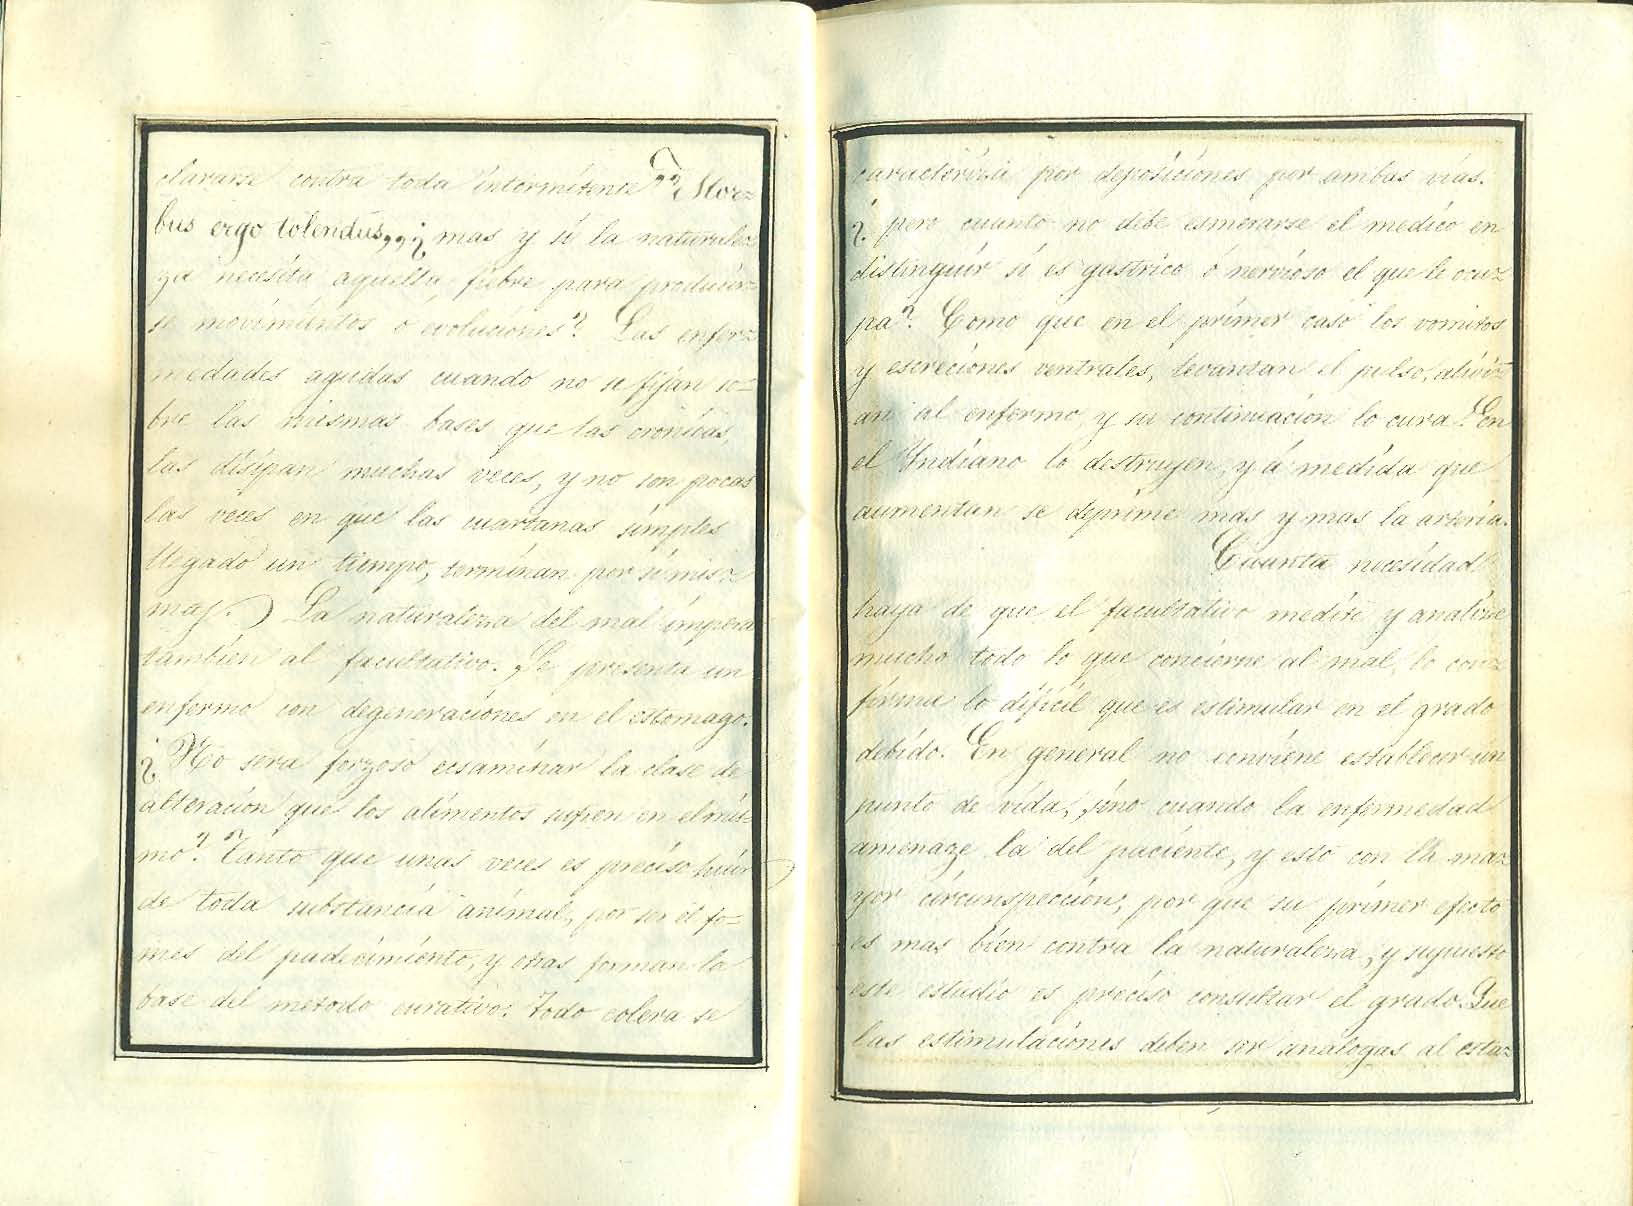 clararse contra toda intermitente "Mor=
bus ergo tolendus,,, ¿ mas y si la naturale=
za necesita aquella fiebre para producir=
se movimientos o evoluciones? Las enfer=
medades agudas cuando no se fijan so=
bre las mismas bases que las crónicas,
las disipan muchas veces, y no son pocas
las veces en que las cuartanas simples
llegado un tiempo, terminan por si mis=
mas.) La naturaleza del mal impera
tambien al facultativo. Se presenta un
enfermo con degeneraciones en el estomago.
¿ No sera forzoso ecsaminar la clase de
alteracion que los alimentos sufren en el mis=
mo? Tanto que unas veces es preciso huir
de toda substancia animal, por ser el fo=
mes del padecimiento, y otras forman la
base del metodo curativo. Todo colera se
caracteriza por deposiciones por ambas vias.
¿ pero cuanto no debe esmerarse el medico en
distinguir si es gastrico ó nervioso el que le ocu=
pa? Como que en el primer caso los vomitos
y escreciones ventrales, levantan el pulso, alivi=
an al enfermo, y su continuacion lo cura! En
el Yndiano lo destruyen, y á medida que
aumentan se deprime mas y mas la arteria.
Cuanta necesidad
haya de que el facultativo medite y analize
mucho todo lo que concierne al mal, lo con=
firma lo dificil que es estimular en el grado
debido. En general no conviene establecer un
punto de vida, sino cuando la enfermedad
amenaze la del paciente, y esto con la ma=
yor circunspeccion, por que su primer efecto
es mas bien contra la naturaleza, y supuesto
este estudio es preciso consultar el grado. Que
las estimulaciones deben ser analogas al esta=